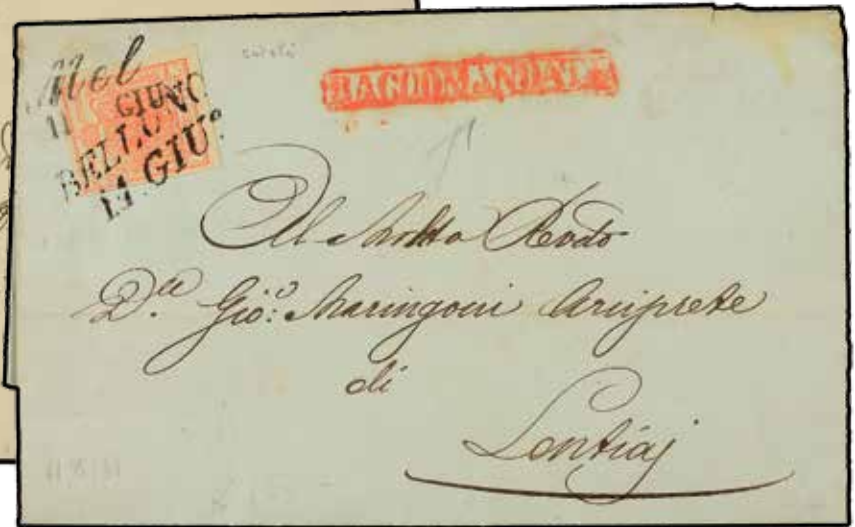 Mel
11 GIUNO
BELLUNO
14. GIUº
RACCOMANDATA
Al Molto Revdo
D.n Gio: Maringoni Arciprete
di
Lentiaj